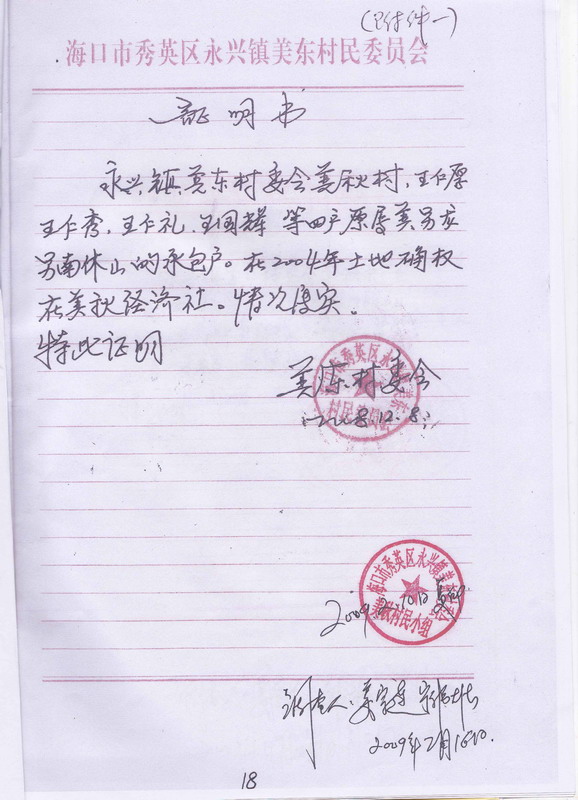 (附件一)
海口市秀英区永兴镇美东村民委员会
证明书
永兴镇美东村委会美秋村,王仁厚
王仁秀,王仁礼,王国辉 等四户原属美
南休山的承包户。在2004年土地确权
在美秋经济社。情况属实。
特此证明
美东村委会
12.8
海口市秀英区永兴镇美东
村民委员会
海口市秀英区永兴镇美东村委会
美秋村民小组
2009.2.10日
调查人:
2009年2月16日
18